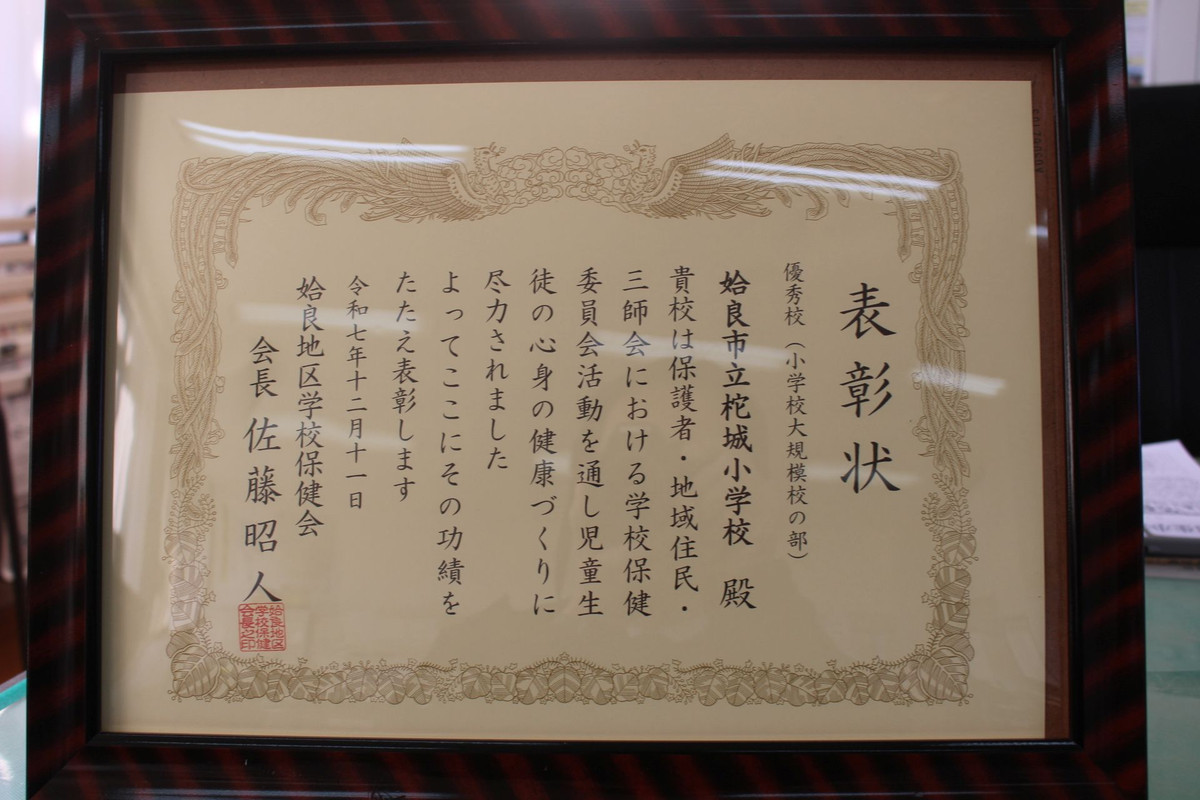 表彰状
優秀校（小学校大規模校の部）
姶良市立柁城小学校　殿
貴校は保護者・地域住民・
三師会における学校保健
委員会活動を通し児童生
徒の心身の健康づくりに
尽力されました
よってここにその功績を
たたえ表彰します
令和七年十二月十一日
姶良地区学校保健会
会長　佐藤昭人
姶良地区
学校保健
会長之印